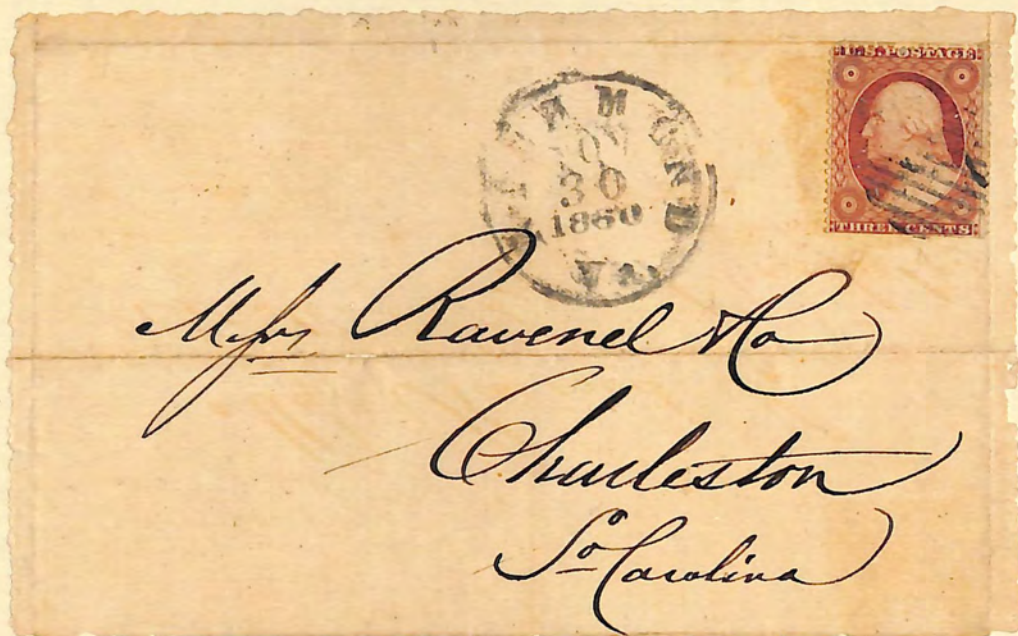 U.S. POSTAGE
THREE CENTS
RICHMOND
NOV
30
1860
Va.
Messrs Ravenel & Co
Charleston
So Carolina